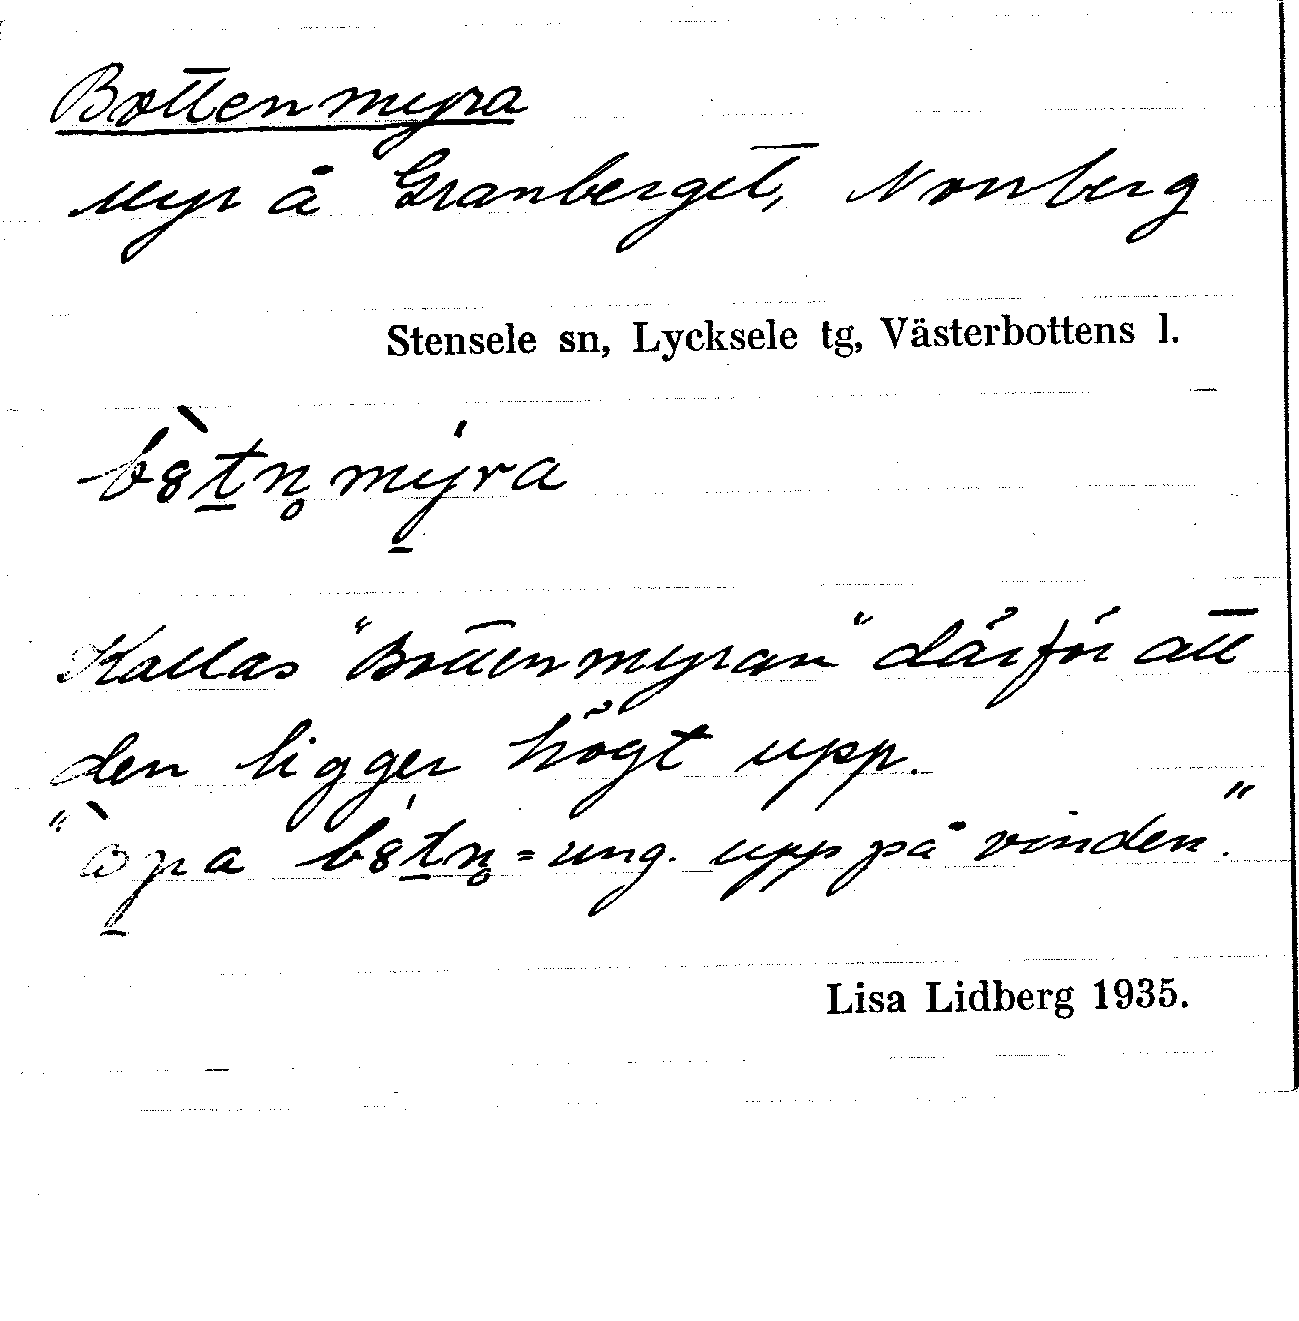 Bottenmyra
Myr å Granberget, Norrberg
Stensele sn, Lycksele tg, Västerbottens l.
bò8t̲n̥mý̲ra
Kallas "Bottenmyran" därför att
den ligger högt upp.
"òp̲a b8t̲n̥ = ung. upp på vinden."
Lisa Lidberg 1935.